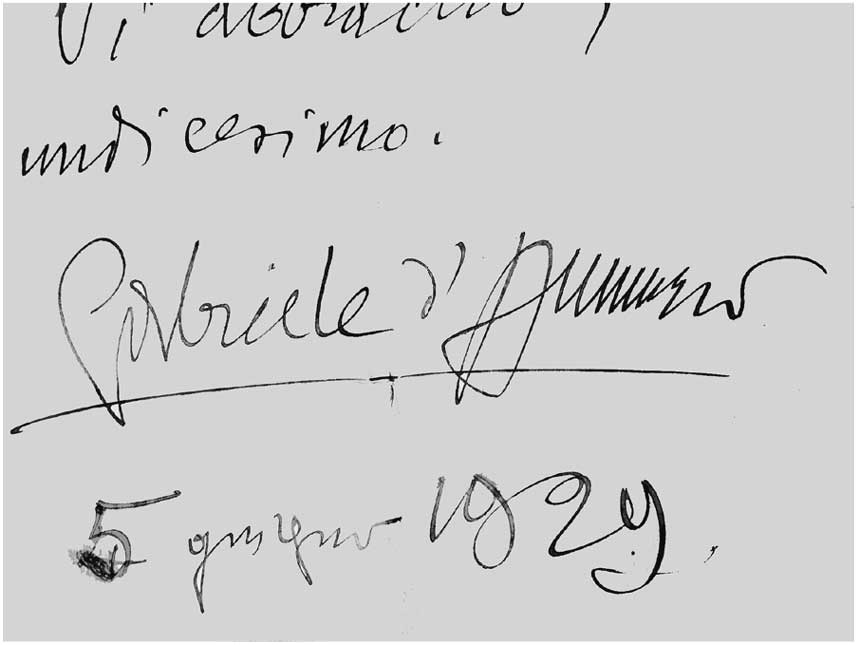 Vi
undicesimo.
Gabriele d'Annunzio
5 giugno 1929.